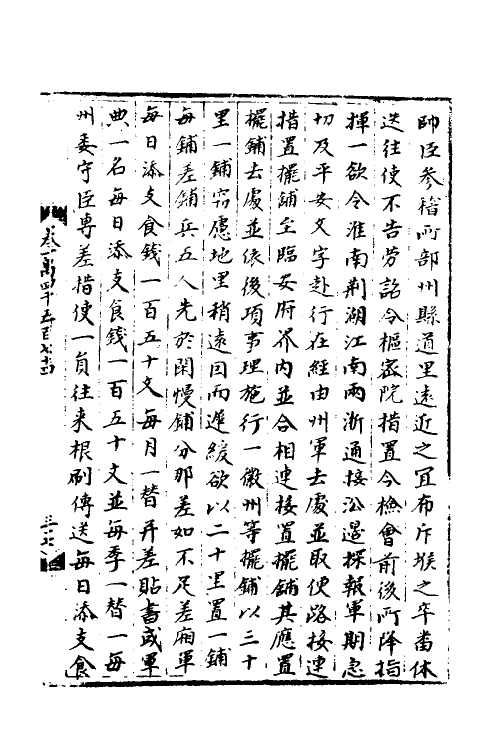 帥臣參稽所部州縣道里遠近之宜布斥堠之卒當休
迭往使不告勞詔令樞密院措置今檢會前後所降指
揮一欲令淮南荆湖江南兩浙通接沿邊探報軍期急
切及平安文字赴行在經由州軍去處並取便路接連
措置擺鋪至臨安府界内並合相連接置擺鋪其應置
擺鋪去處並依後項事理施行一徽州等擺鋪以三十
里一鋪竊慮地里稍遠因而遲緩欲以二十里置一鋪
每鋪差鋪兵五人先於閑慢鋪分那差如不足差廂軍
每日添支食錢一百五十文每月一替并差貼書或軍
典一名每日添支食錢一百五十文並每季一替一每
州委守臣專差指使一員往来根刷傳送每日添支食
卷一萬四千五百七十四